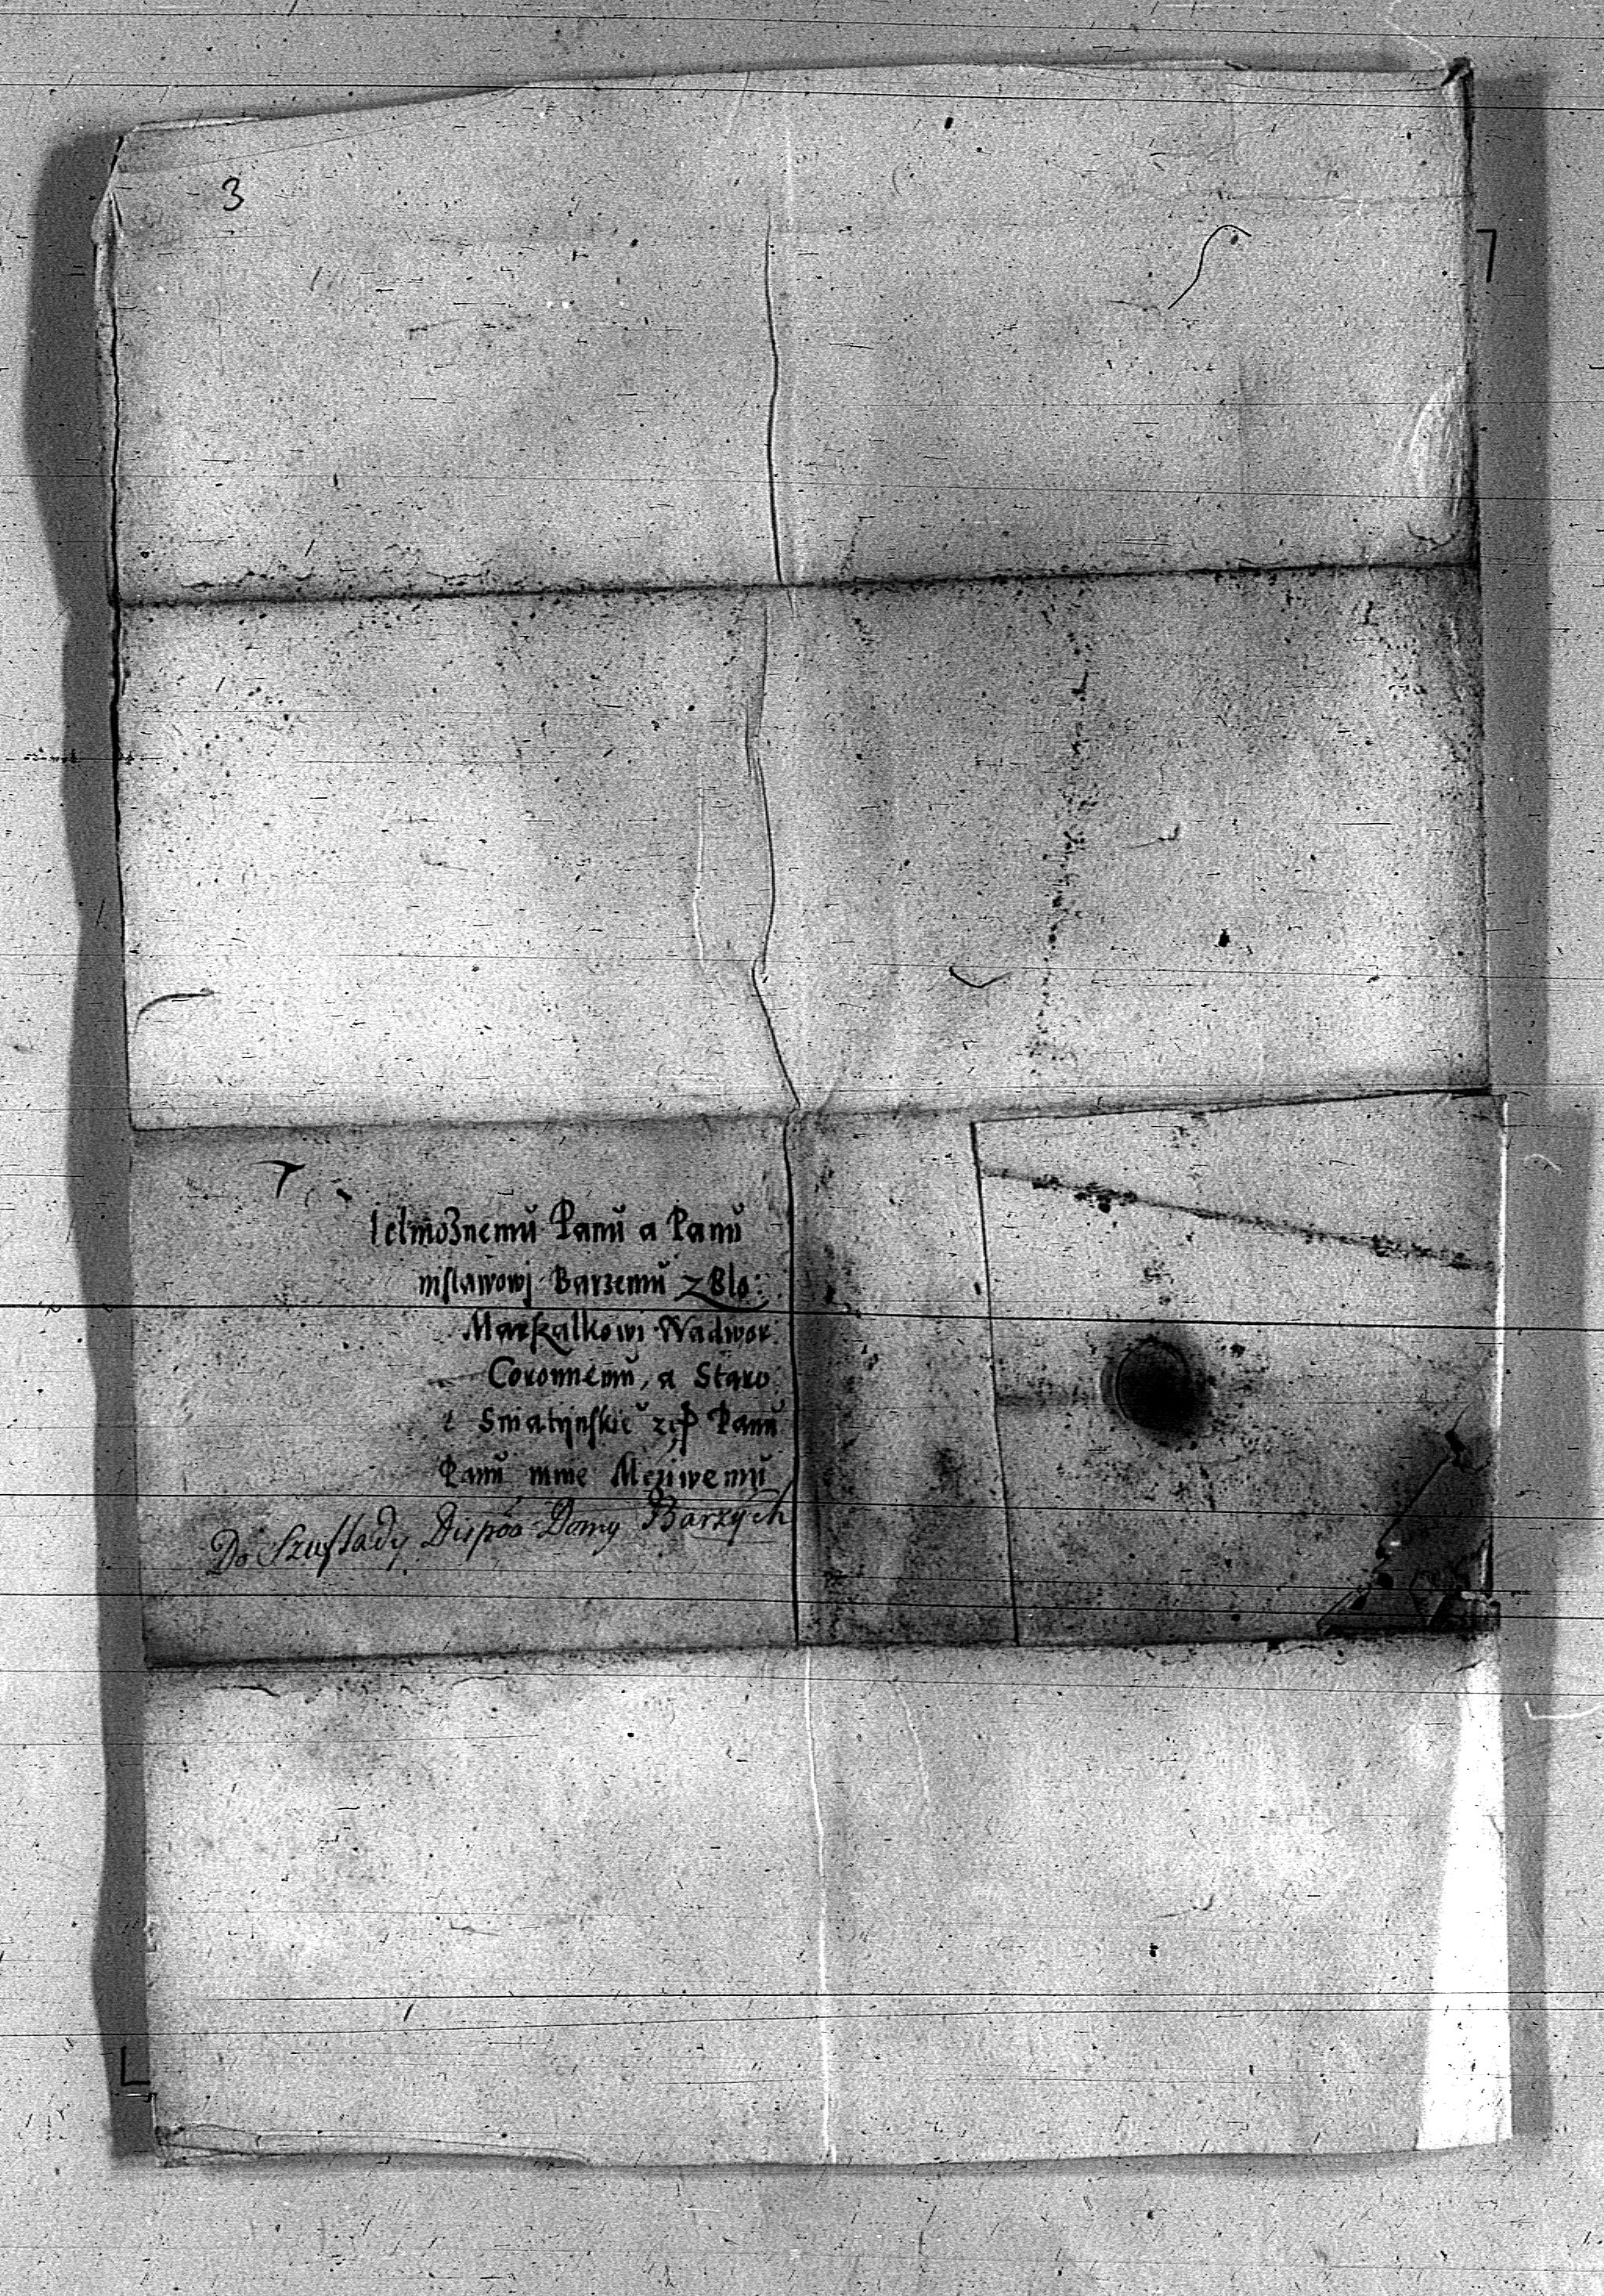 3
ielmoznemu Panu a Panu
nislawowj Barzemu z Blo:
Marszalkowi Nadwor:
Coronnemu, a Staro
Sniatijnskie Panu
Panu mnie Mczиwemu
Do Szuflady Domy Barzych